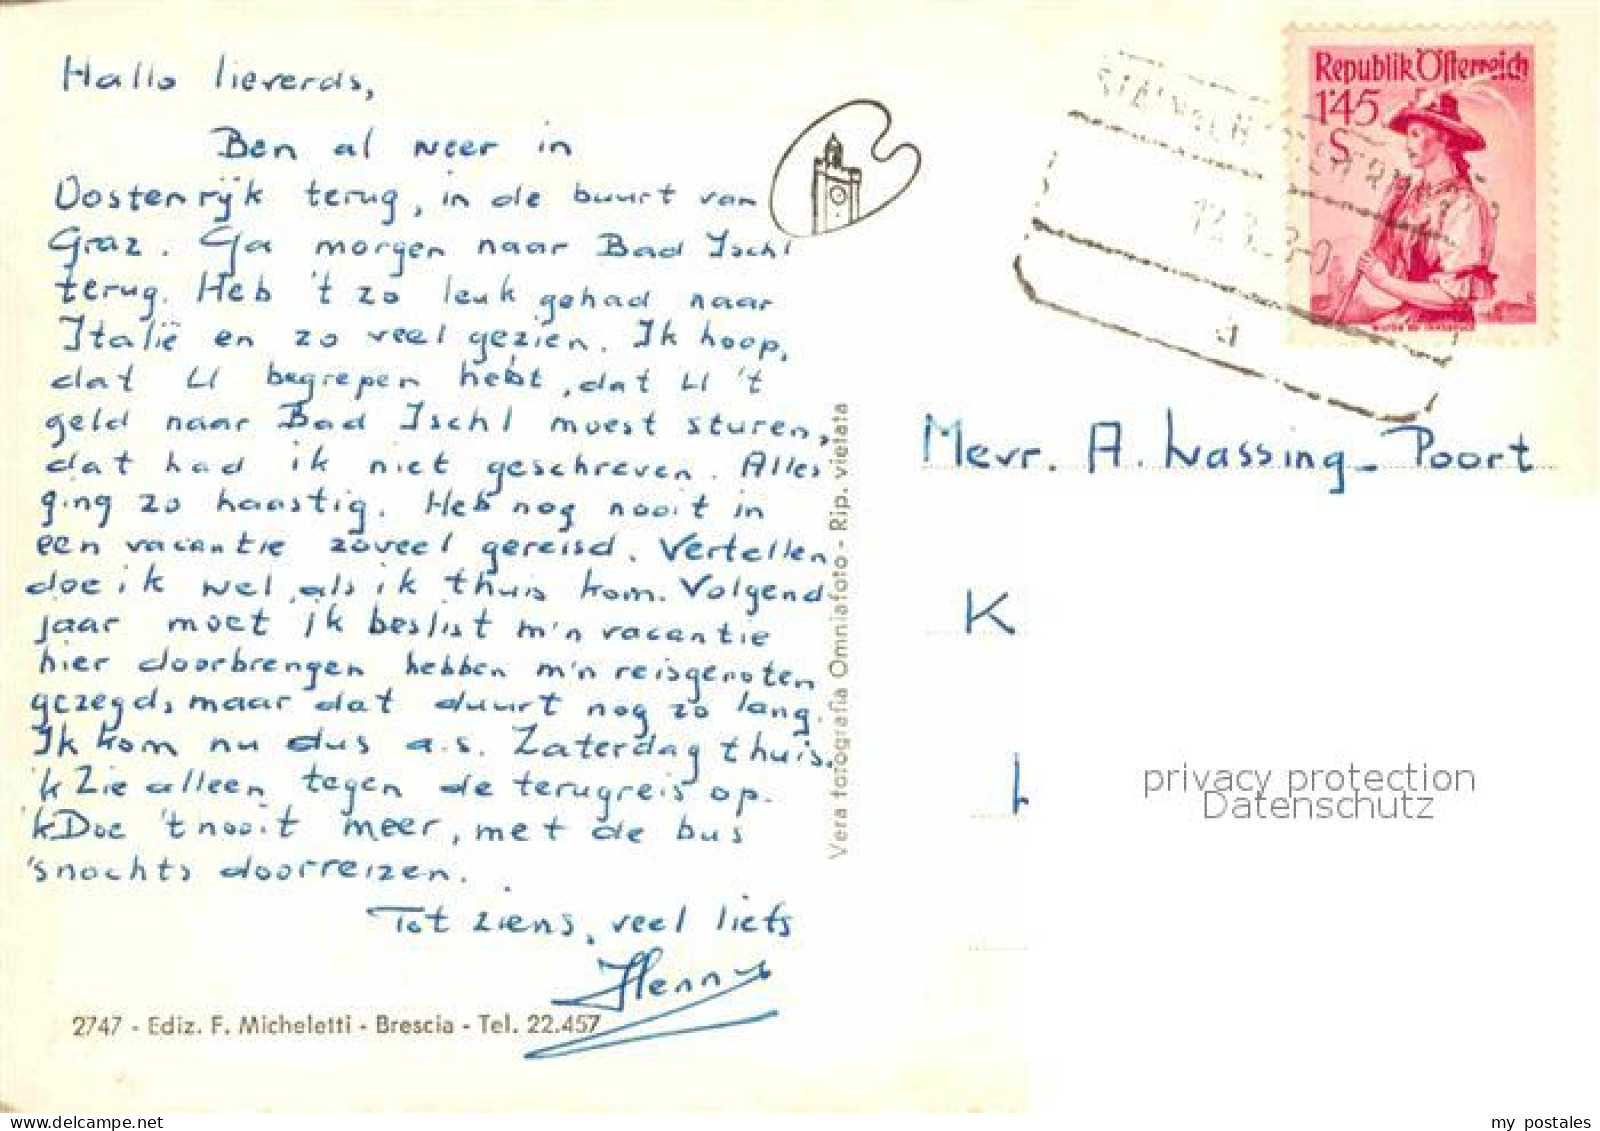 Hallo lieverds,
Ben al weer in
Oostenrijk terug, in de buurt van
Graz. Ga morgen naar Bad Ischl
terug. Heb 't zo leuk gehad naar
Italië en zo veel gezien. Ik hoop,
dat U begrepen hebt, dat U 't
geld naar Bad Ischl moest sturen,
dat had ik niet geschreven. Alles
ging zo haastig. Heb nog nooit in
een vacantie zoveel gereisd. Vertellen
doe ik wel, als ik thuis kom. Volgend
jaar moet ik beslist m'n vacantie
hier doorbrengen hebben m'n reisgenoten
gezegd, maar dat duurt nog zo lang.
Ik kom nu dus a.s. Zaterdag thuis.
'k Zie alleen tegen de terugreis op.
'k Doe 't nooit meer, met de bus
's nachts doorreizen.
Tot ziens, veel liefs
Henny
2747 - Ediz. F. Micheletti - Brescia - Tel. 22.457
Vera fotografia Omniafoto - Rip. vietata
Republik Österreich
1'45
S
Mevr. A. Wassing-Poort
K
privacy protection
Datenschutz
my postales